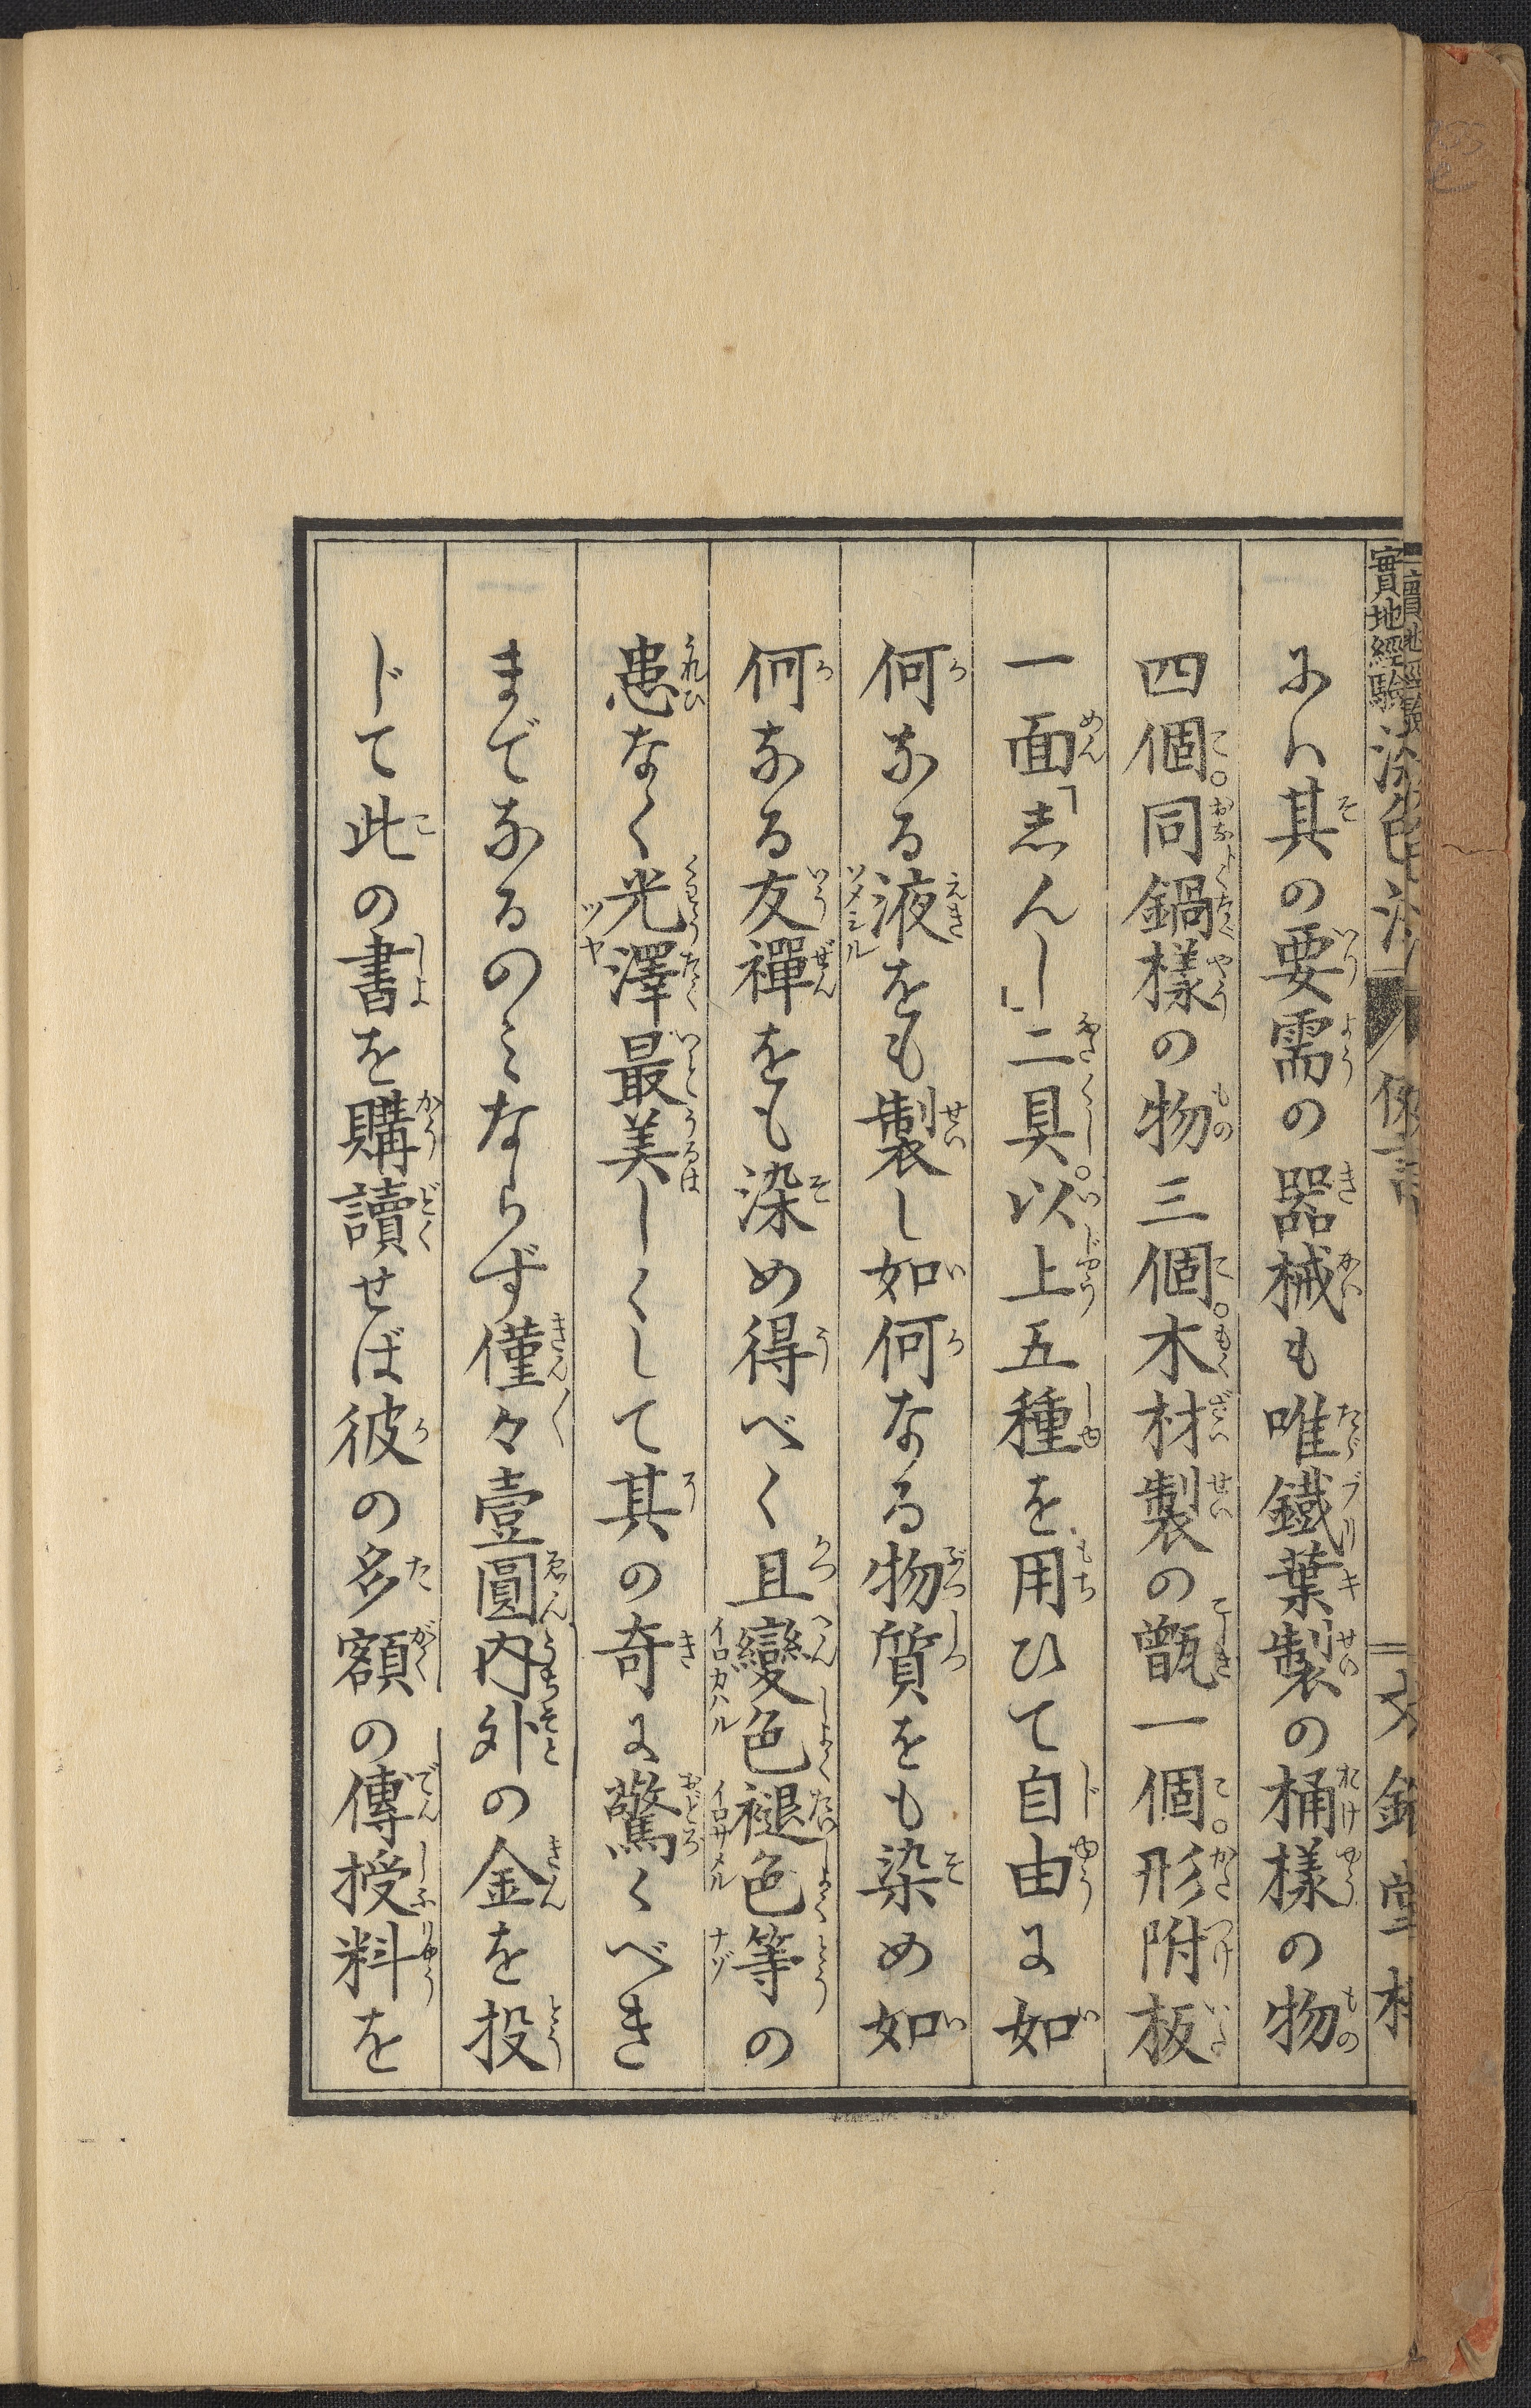 實地經驗染色法
みハ其の要需の器械も唯鐵葉製の桶樣の物
四個。同鍋樣の物三個。木材製の甑一個。形附板
一面「志んし」二具。以上五種を用ひて自由に如
何なる液をも製し如何なる物質をも染め如
何なる友禪をも染め得べく且變色褪色等の
患なく光澤最美しくして其の奇に驚くべき
までなるのミならず僅々壹圓内外の金を投
じて此の書を購讀せば彼の多額の傳授料を